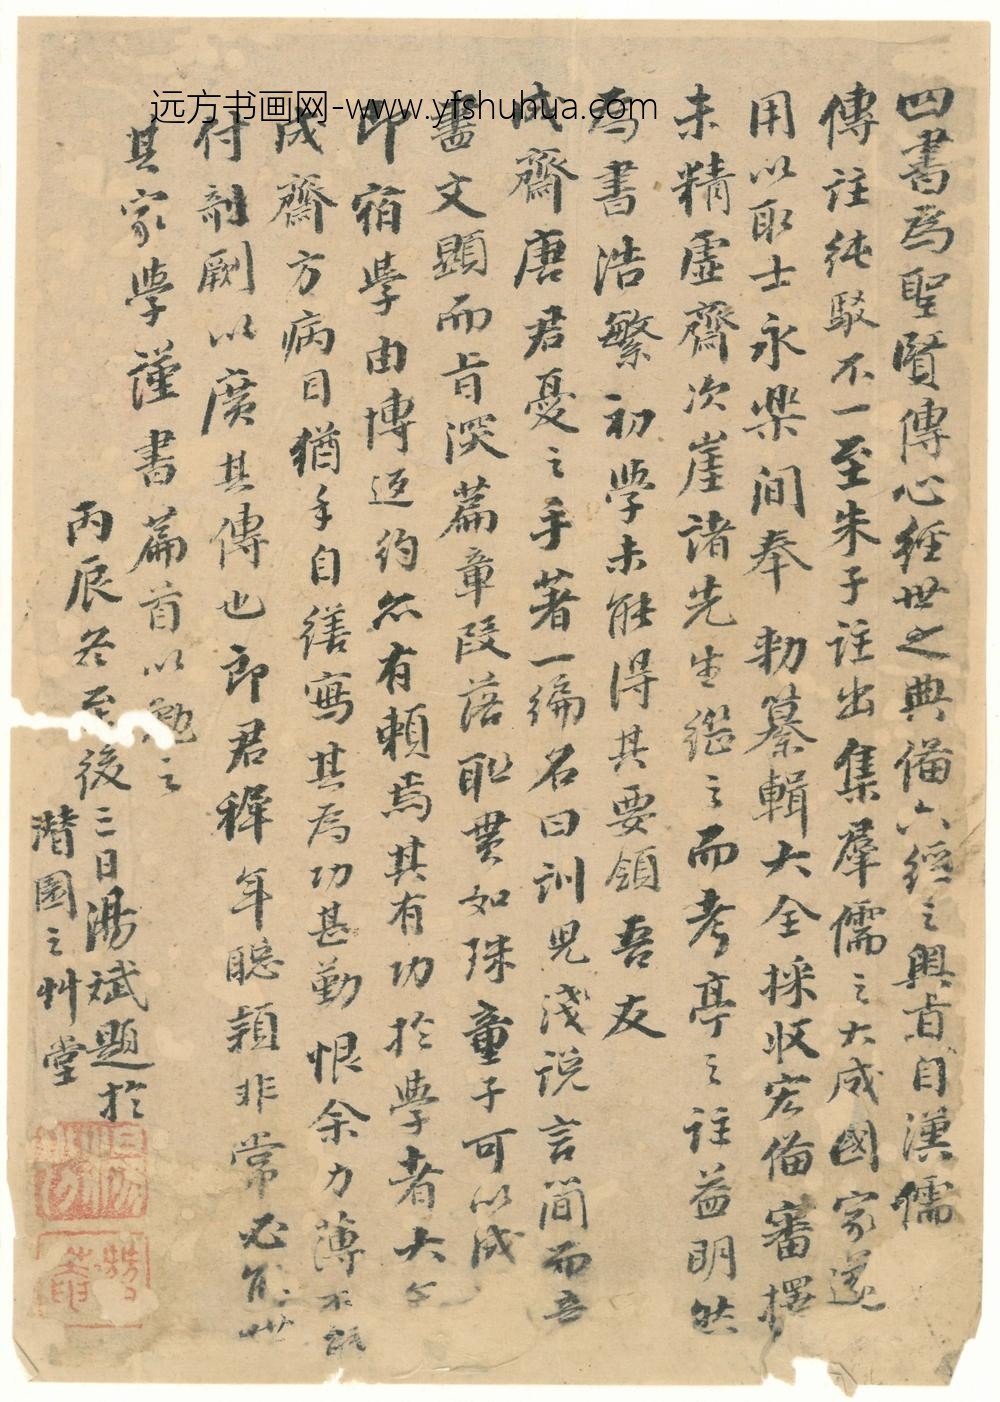 远方书画网-www.yfshuhua.com
四書為聖賢傳心經世之典備六經之奧旨自漢儒
傳註純駁不一至朱子註出集羣儒之大成國家遂
用以取士永樂間奉勅纂輯大全採收宏備審擇
未精虛齋次崖諸先生繼之而考亭之註益明然
為書浩繁初學未能得其要領吾友
成齋唐君憂之手著一編名曰訓兒淺說言簡而意
盡文顯而旨深篇章段落聯貫如珠童子可以成
即宿學由博返約亦有賴焉其有功於學者大
成齋方病目猶手自繕寫其為功甚勤恨余力薄不能
付剞劂以廣其傳也郎君稺年聰穎非常必能世
其家學謹書篇首以勉之
丙辰冬至後三日湯斌題於
潛園之艸堂